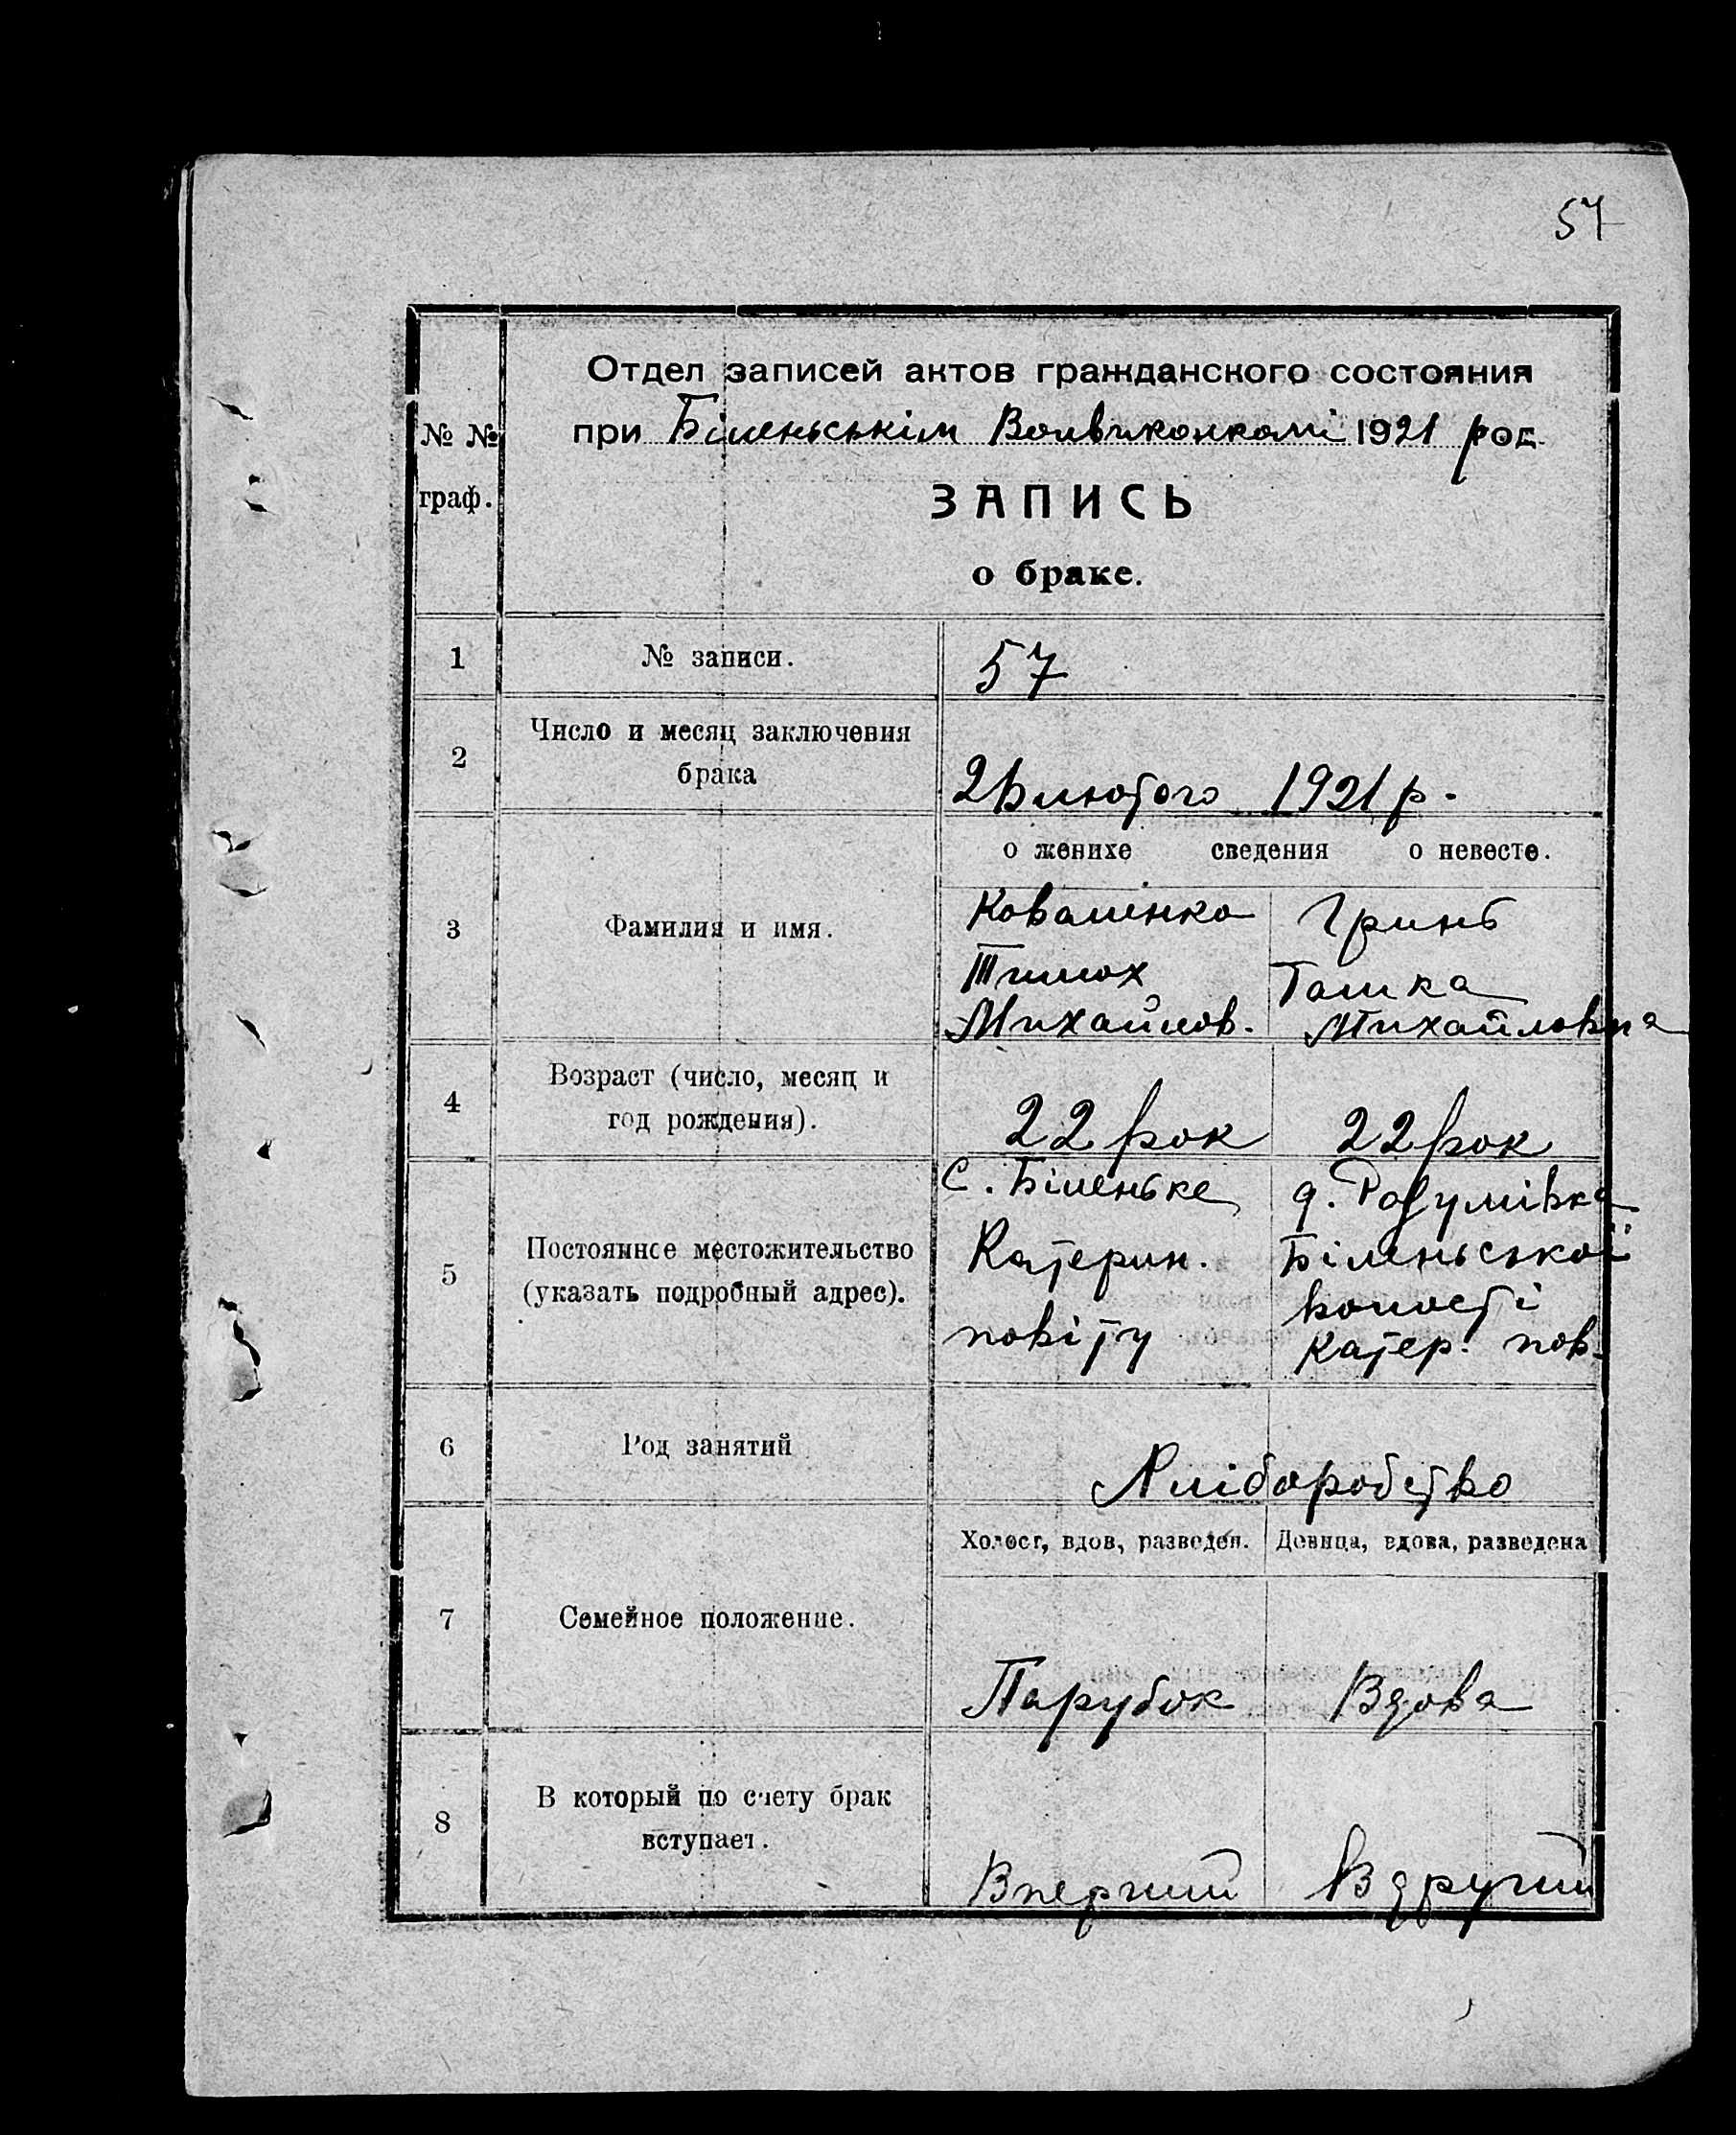 57
№ №
граф.
Отдел записей актов гражданского состояния
при Біленьськім Волвиконкомі 1921 год
ЗАПИСЬ
о браке.
1
№ записи.
57
2
Число и месяц заключения
брака
лютого 1921 р.
о женихе сведения о невесте.
3
Фамилия и имя.
Коваленко
Тимох
Михайлов.
Гринь
Галька
Михайловна
4
Возраст (число, месяц и
год рождения).
22 рок
22 рок
5
Постоянное местожительство
(указать подробный адрес).
С. Біленьке
Катерин.
повіту
д.
Біленьської
волості
Катер. пов.
6
Род занятий
Хліборобство
7
Семейное положение.
Холост, вдов, разведен.
Девица, вдова, разведена
Парубок
Вдова
8
В который по счету брак
вступает.
Вперший
Вдругий